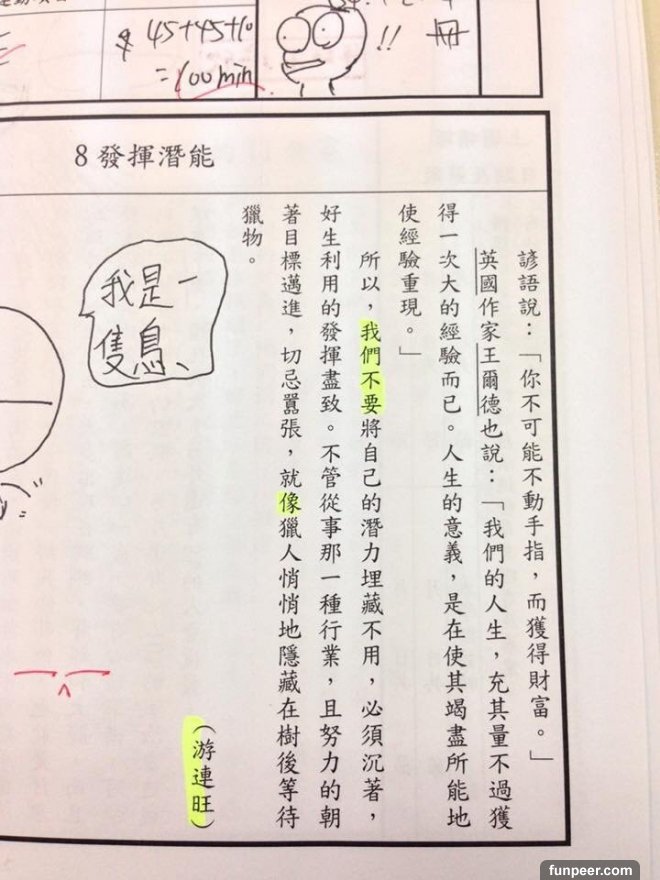 $ 45+45+10
=100 min
!!
冊
8 發揮潛能
諺語說:「你不可能不動手指,而獲得財富。」
英國作家王爾德也說:「我們的人生,充其量不過獲
得一次大的經驗而已。人生的意義,是在使其竭盡所能地
使經驗重現。」
所以,我們不要將自己的潛力埋藏不用,必須沉著,
好生利用的發揮盡致。不管從事那一種行業,且努力的朝
著目標邁進,切忌囂張,就像獵人悄悄地隱藏在樹後等待
獵物。
(游連旺)
我是一
隻鳥、
funpeer.com